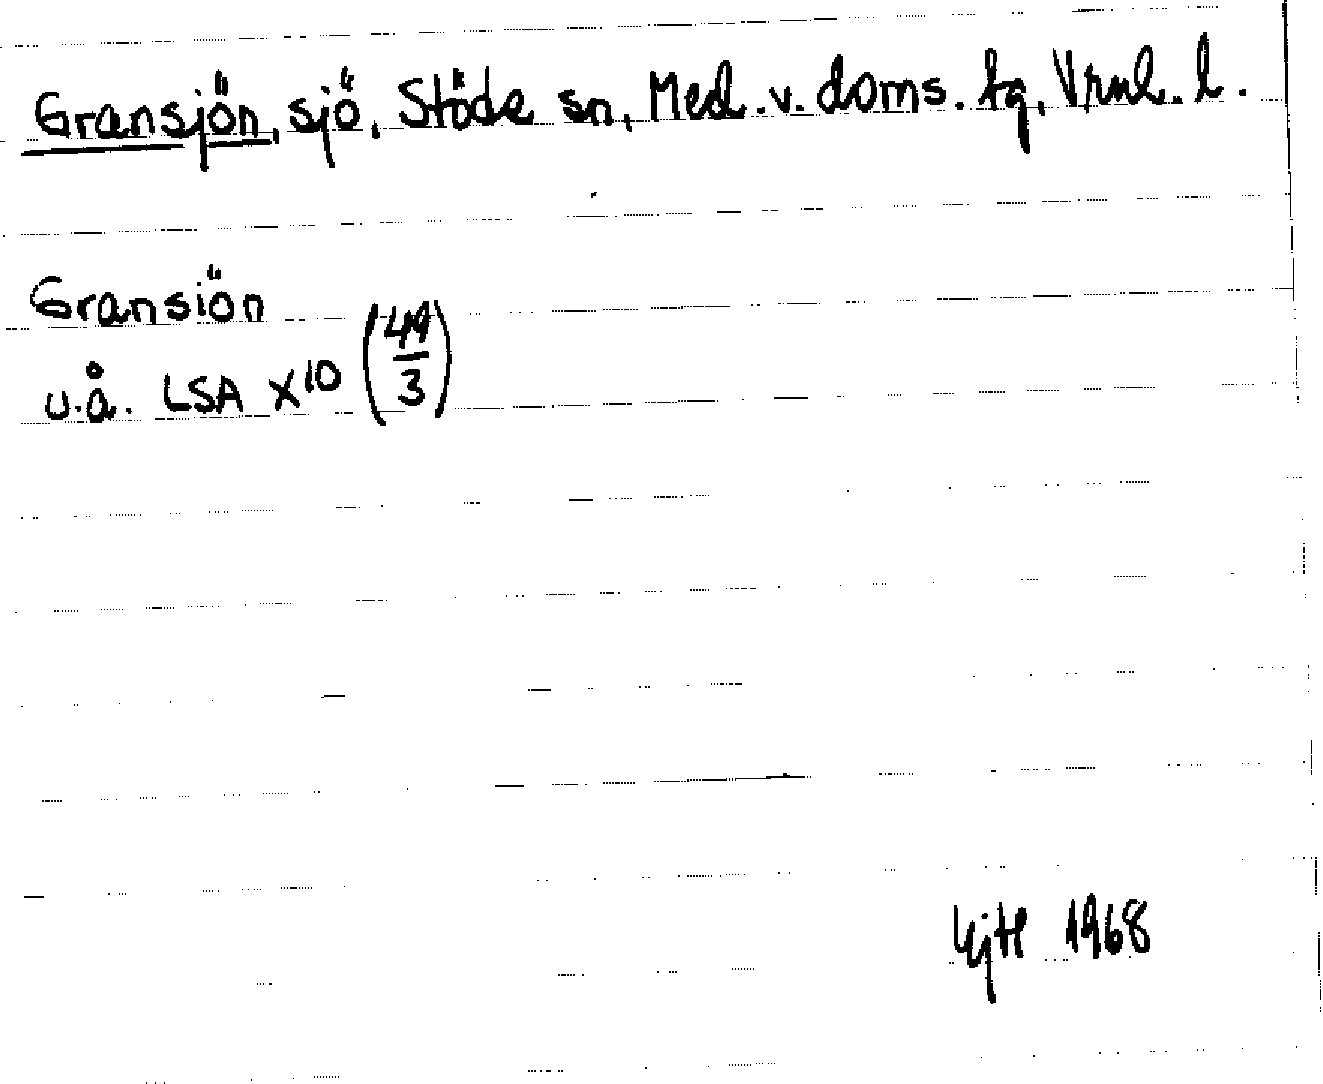 Gransjön, sjö, Stöde sn, Med. v. doms. tg, Vrnl. l.
Gransiön
u.å. LSA X10 (49/3)
1968